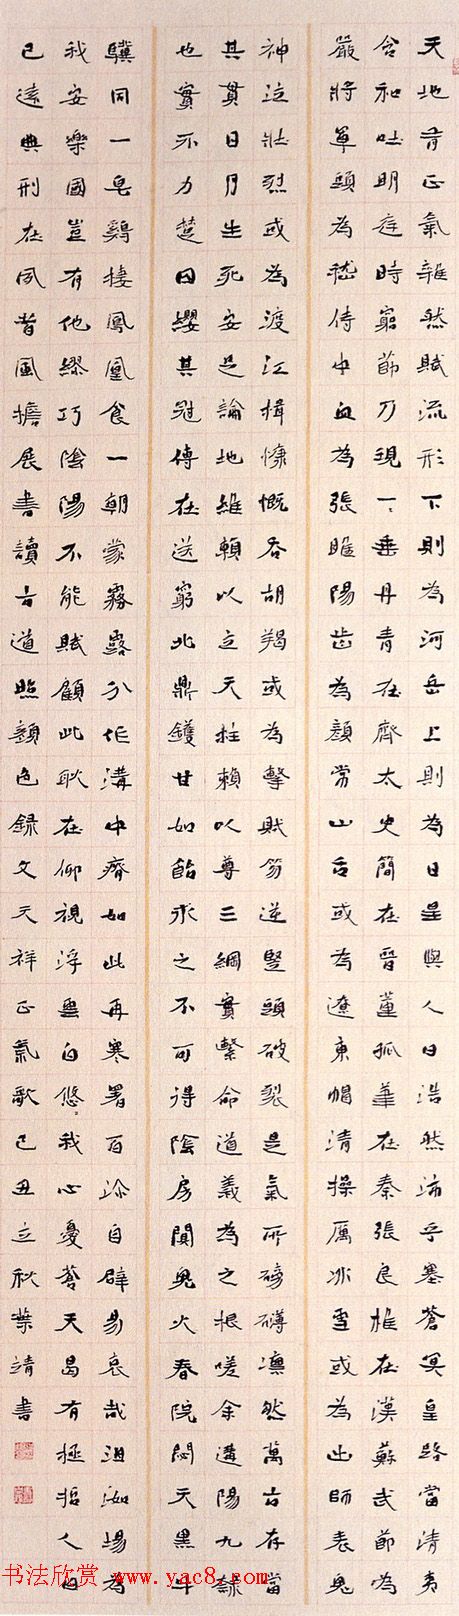 天地有正氣雜然賦流形下則為河岳上則為日星與人曰浩然沛乎塞蒼冥皇路當清夷
含和吐明庭時窮節乃現一〻垂丹青在齊太史簡在晉董狐筆在秦張良椎在漢蘇武節為
嚴將軍頭為嵇侍中血為張睢陽齒為顏常山舌或為遼東帽清操厲冰雪或為出師表鬼
神泣壯烈或為渡江楫慷慨吞胡羯或為擊賊笏逆豎頭破裂是氣所磅礴凜然萬古存當
其貫日月生死安足論地維賴以立天柱賴以尊三綱實繫命道義為之根嗟余遘陽九隸
也實不力楚囚纓其冠傳在送窮北鼎鑊甘如飴求之不可得陰房闃鬼火春院閟天黑牛
驥同一皂鷄棲鳳凰食一朝蒙霧露分作溝中瘠如此再寒暑百沴自辟易哀哉沮洳場為
我安樂國豈有他繆巧陰陽不能賊顧此耿在仰視浮雲白悠〻我心憂蒼天曷有極哲人日
已遠典刑在夙昔風檐展書讀古道照顏色錄文天祥正氣歌己丑立秋葉靖書
书法欣赏 www.yac8.com